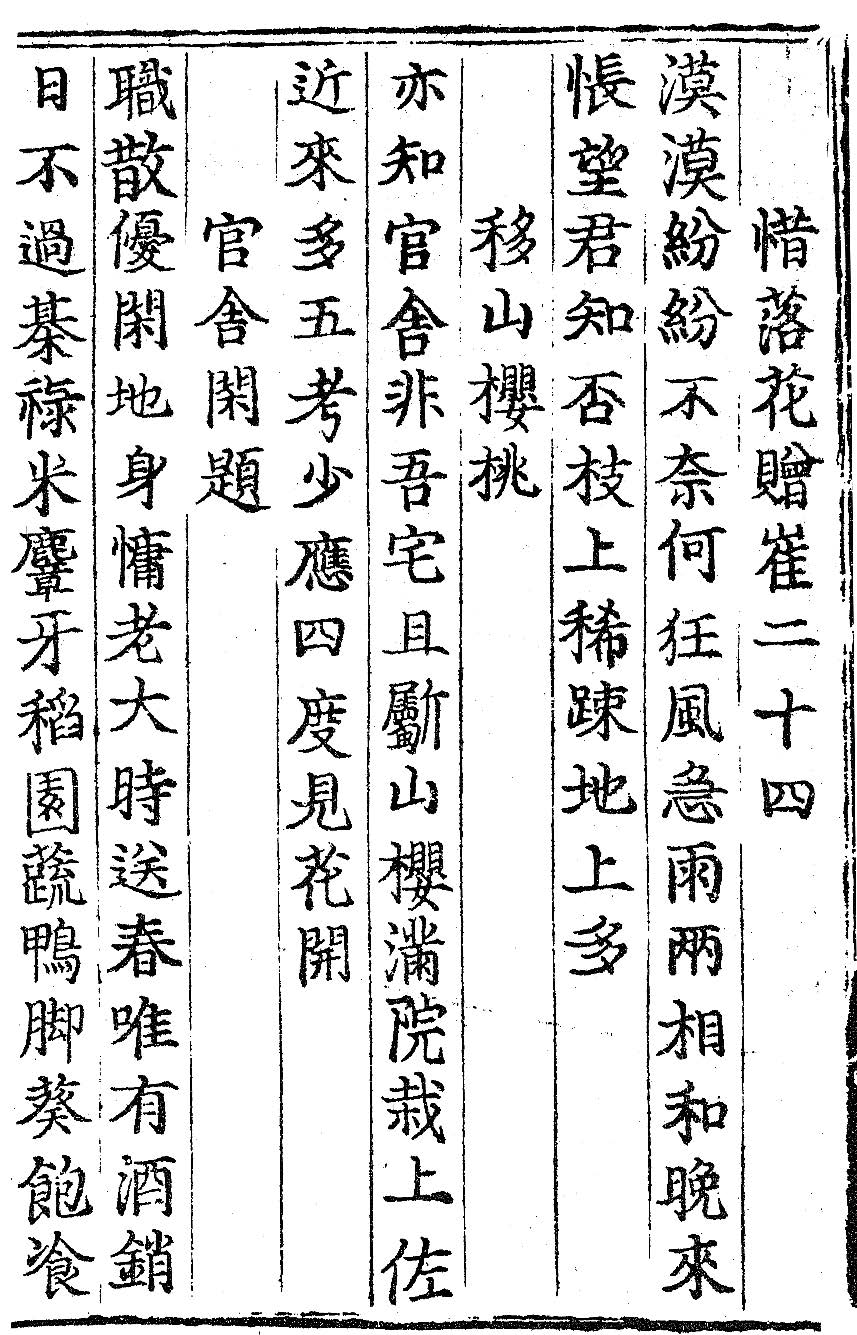 惜落花贈崔二十四
漠漠紛紛不奈何狂風急雨兩相和晚來
悵望君知否枝上稀踈地上多
移山櫻桃
亦知官舍非吾宅且斸山櫻滿院栽上佐
近來多五考少應四度見花開
官舍閑題
職散優閑地身慵老大時送春唯有酒銷
日不過棊祿米麞牙稻園蔬鴨脚葵飽飡